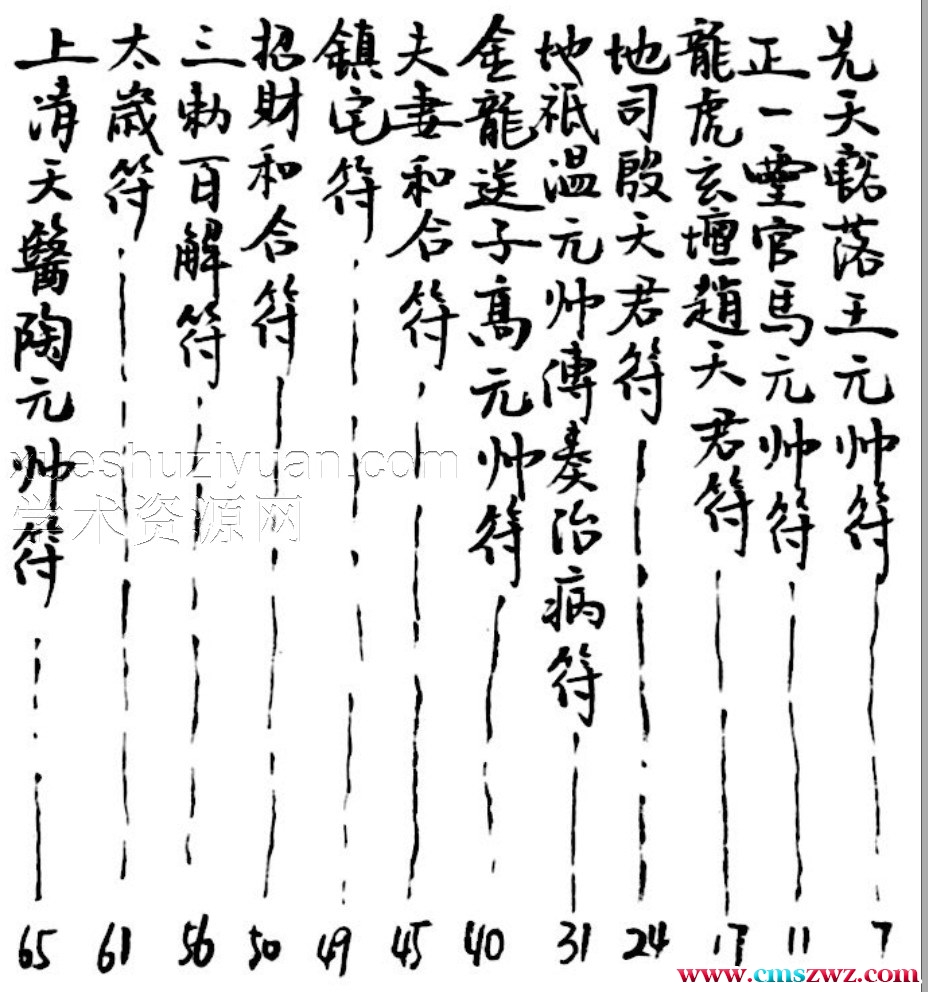 先天豁落王元帅符 7
正一靈官馬元帅符 11
龍虎玄壇趙天君符 17
地司殷天君符 24
地祇温元帅傳奏治病符 31
金龍送子高元帅符 40
夫妻和合符 45
鎮宅符 49
招財和合符 50
三勅百解符 56
太歲符 61
上清天醫陶元帅符 65
xueshuziyuan.com
学术资源网
www.cmszwz.com